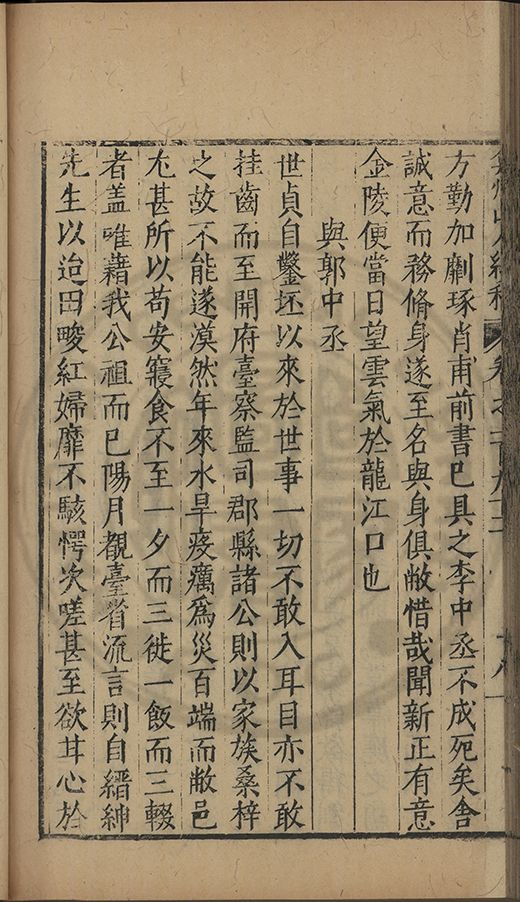 弇州山人續稿 卷之一百九十二 十八
方勤加劘琢肖甫前書已具之李中丞不成死矣舍
誠意而務脩身遂至名與身俱敝惜哉聞新正有意
金陵便當日望雲氣於龍江口也
與郭中丞
世貞自鑿坯以來於世事一切不敢入耳目亦不敢
挂齒而至開府臺察監司郡縣諸公則以家族桑梓
之故不能遂漠然年來水旱疫癘爲災百端而敝邑
尤甚所以苟安寢食不至一夕而三徙一飯而三輟
者盖唯藉我公祖而已陽月覩臺省流言則自縉紳
先生以迨田畯紅婦靡不駭愕次嗟甚至欲甘心於